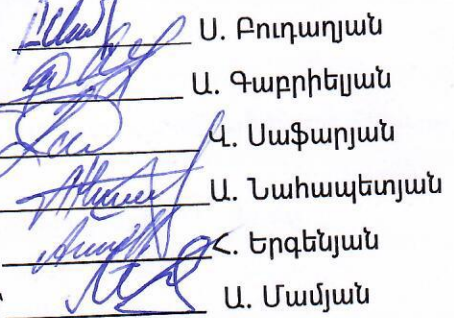 Ս. Բուդաղյան
Ա. Գաբրիելյան
Վ. Սաֆարյան
Ա. Նահապետյան
Հ. Երգենյան
Ա. Մամյան